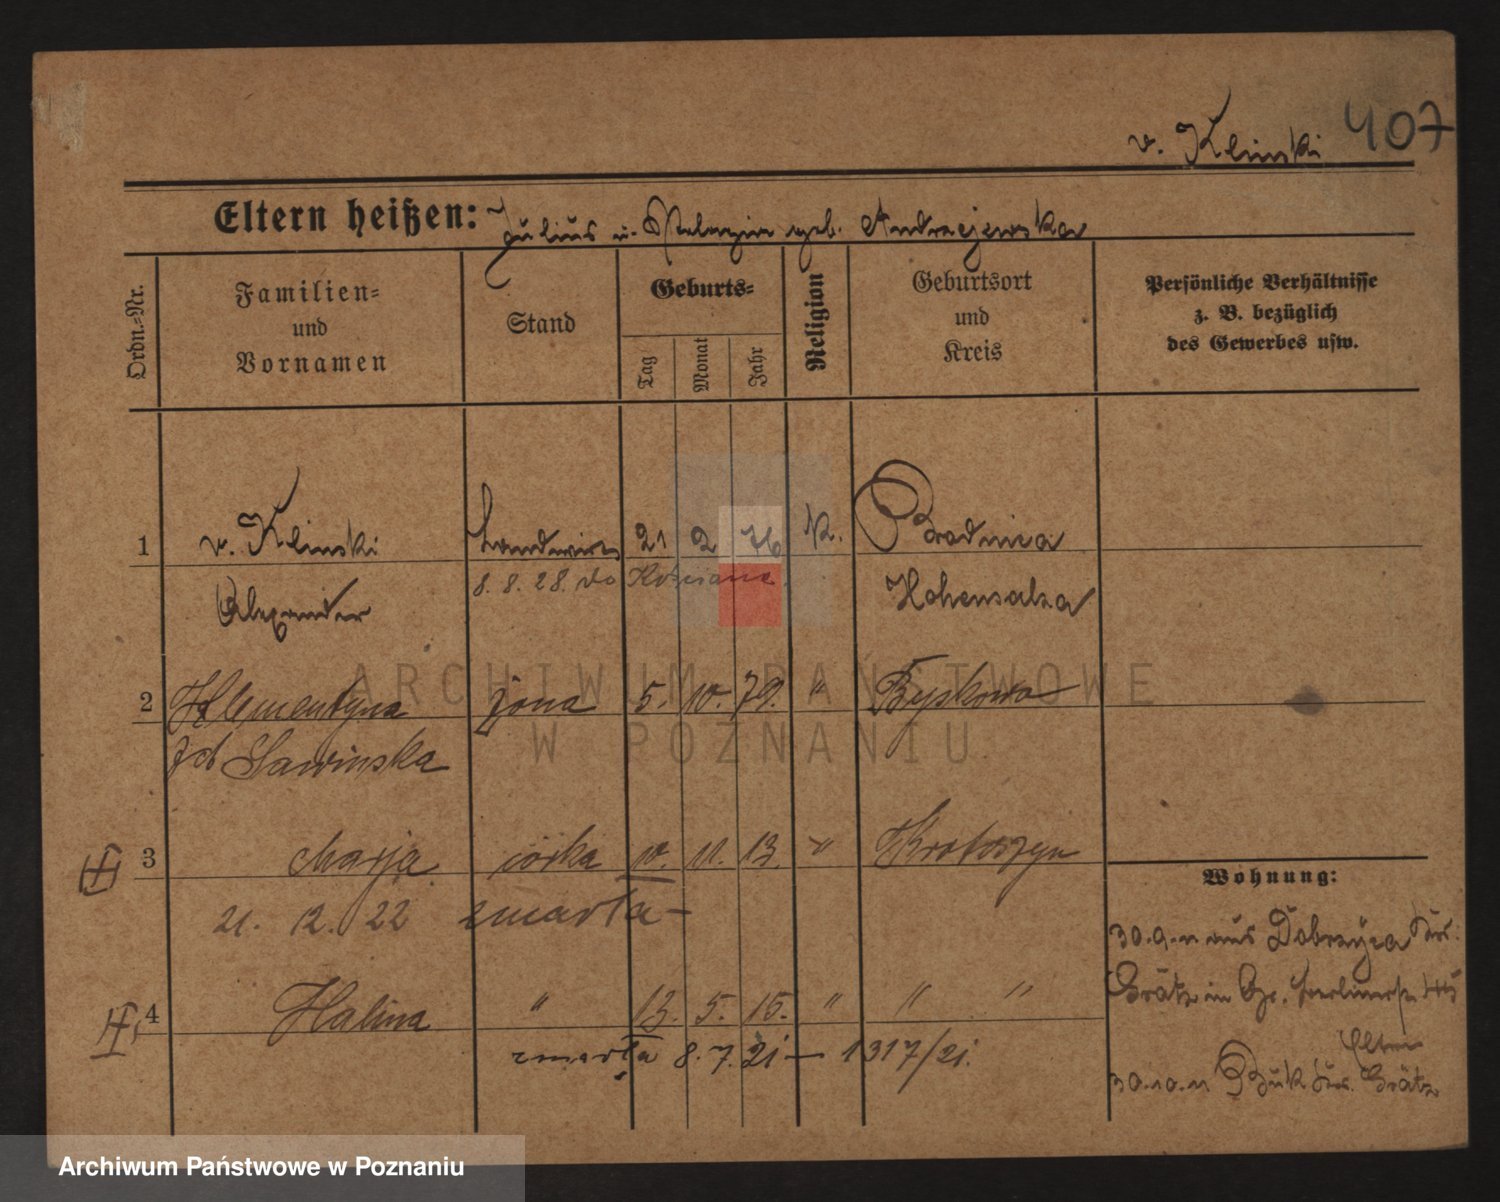 v. Klinski 407
Eltern heißen: Julius u. Pelagia geb. Andrzejewska
Ordn.-Nr.
Familien-
und
Vornamen
Stand
Geburts-
Tag
Monat
Jahr
Religion
Geburtsort
und
Kreis
Persönliche Verhältnisse
z. B. bezüglich
des Gewerbes usw.
1 v. Klinski Landwirt 21 2 76 K. Brodnica
8. 8. 28. do Kościana.
Alexander Hohensalza
2 Klementyna żona 5. 10. 79. "
zd Sawińska
3 Marja córka 10. 11. 13. " Krotoszyn
21. 12. 22 zmarła —
Wohnung:
30.9.11 aus Dobrzyca
Grätz
4 Halina " 13. 5. 15. " " "
zmarła 8. 7. 21 — 1317/21.
Eltern
30.10.11 Buk Krs. Grätz
ARCHIWUM PAŃSTWOWE
W POZNANIU
Archiwum Państwowe w Poznaniu